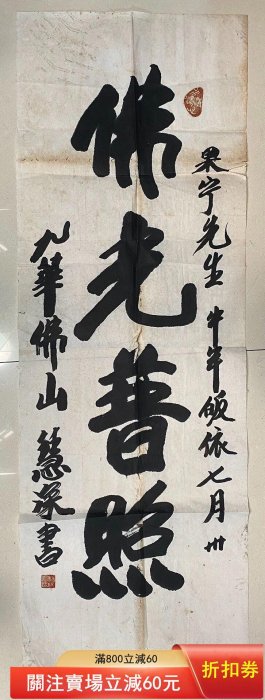 果宁先生 牛年皈依七月卅
佛光普照
九華佛山 慧深書
滿800立減60
關注賣場立減60元
折扣券